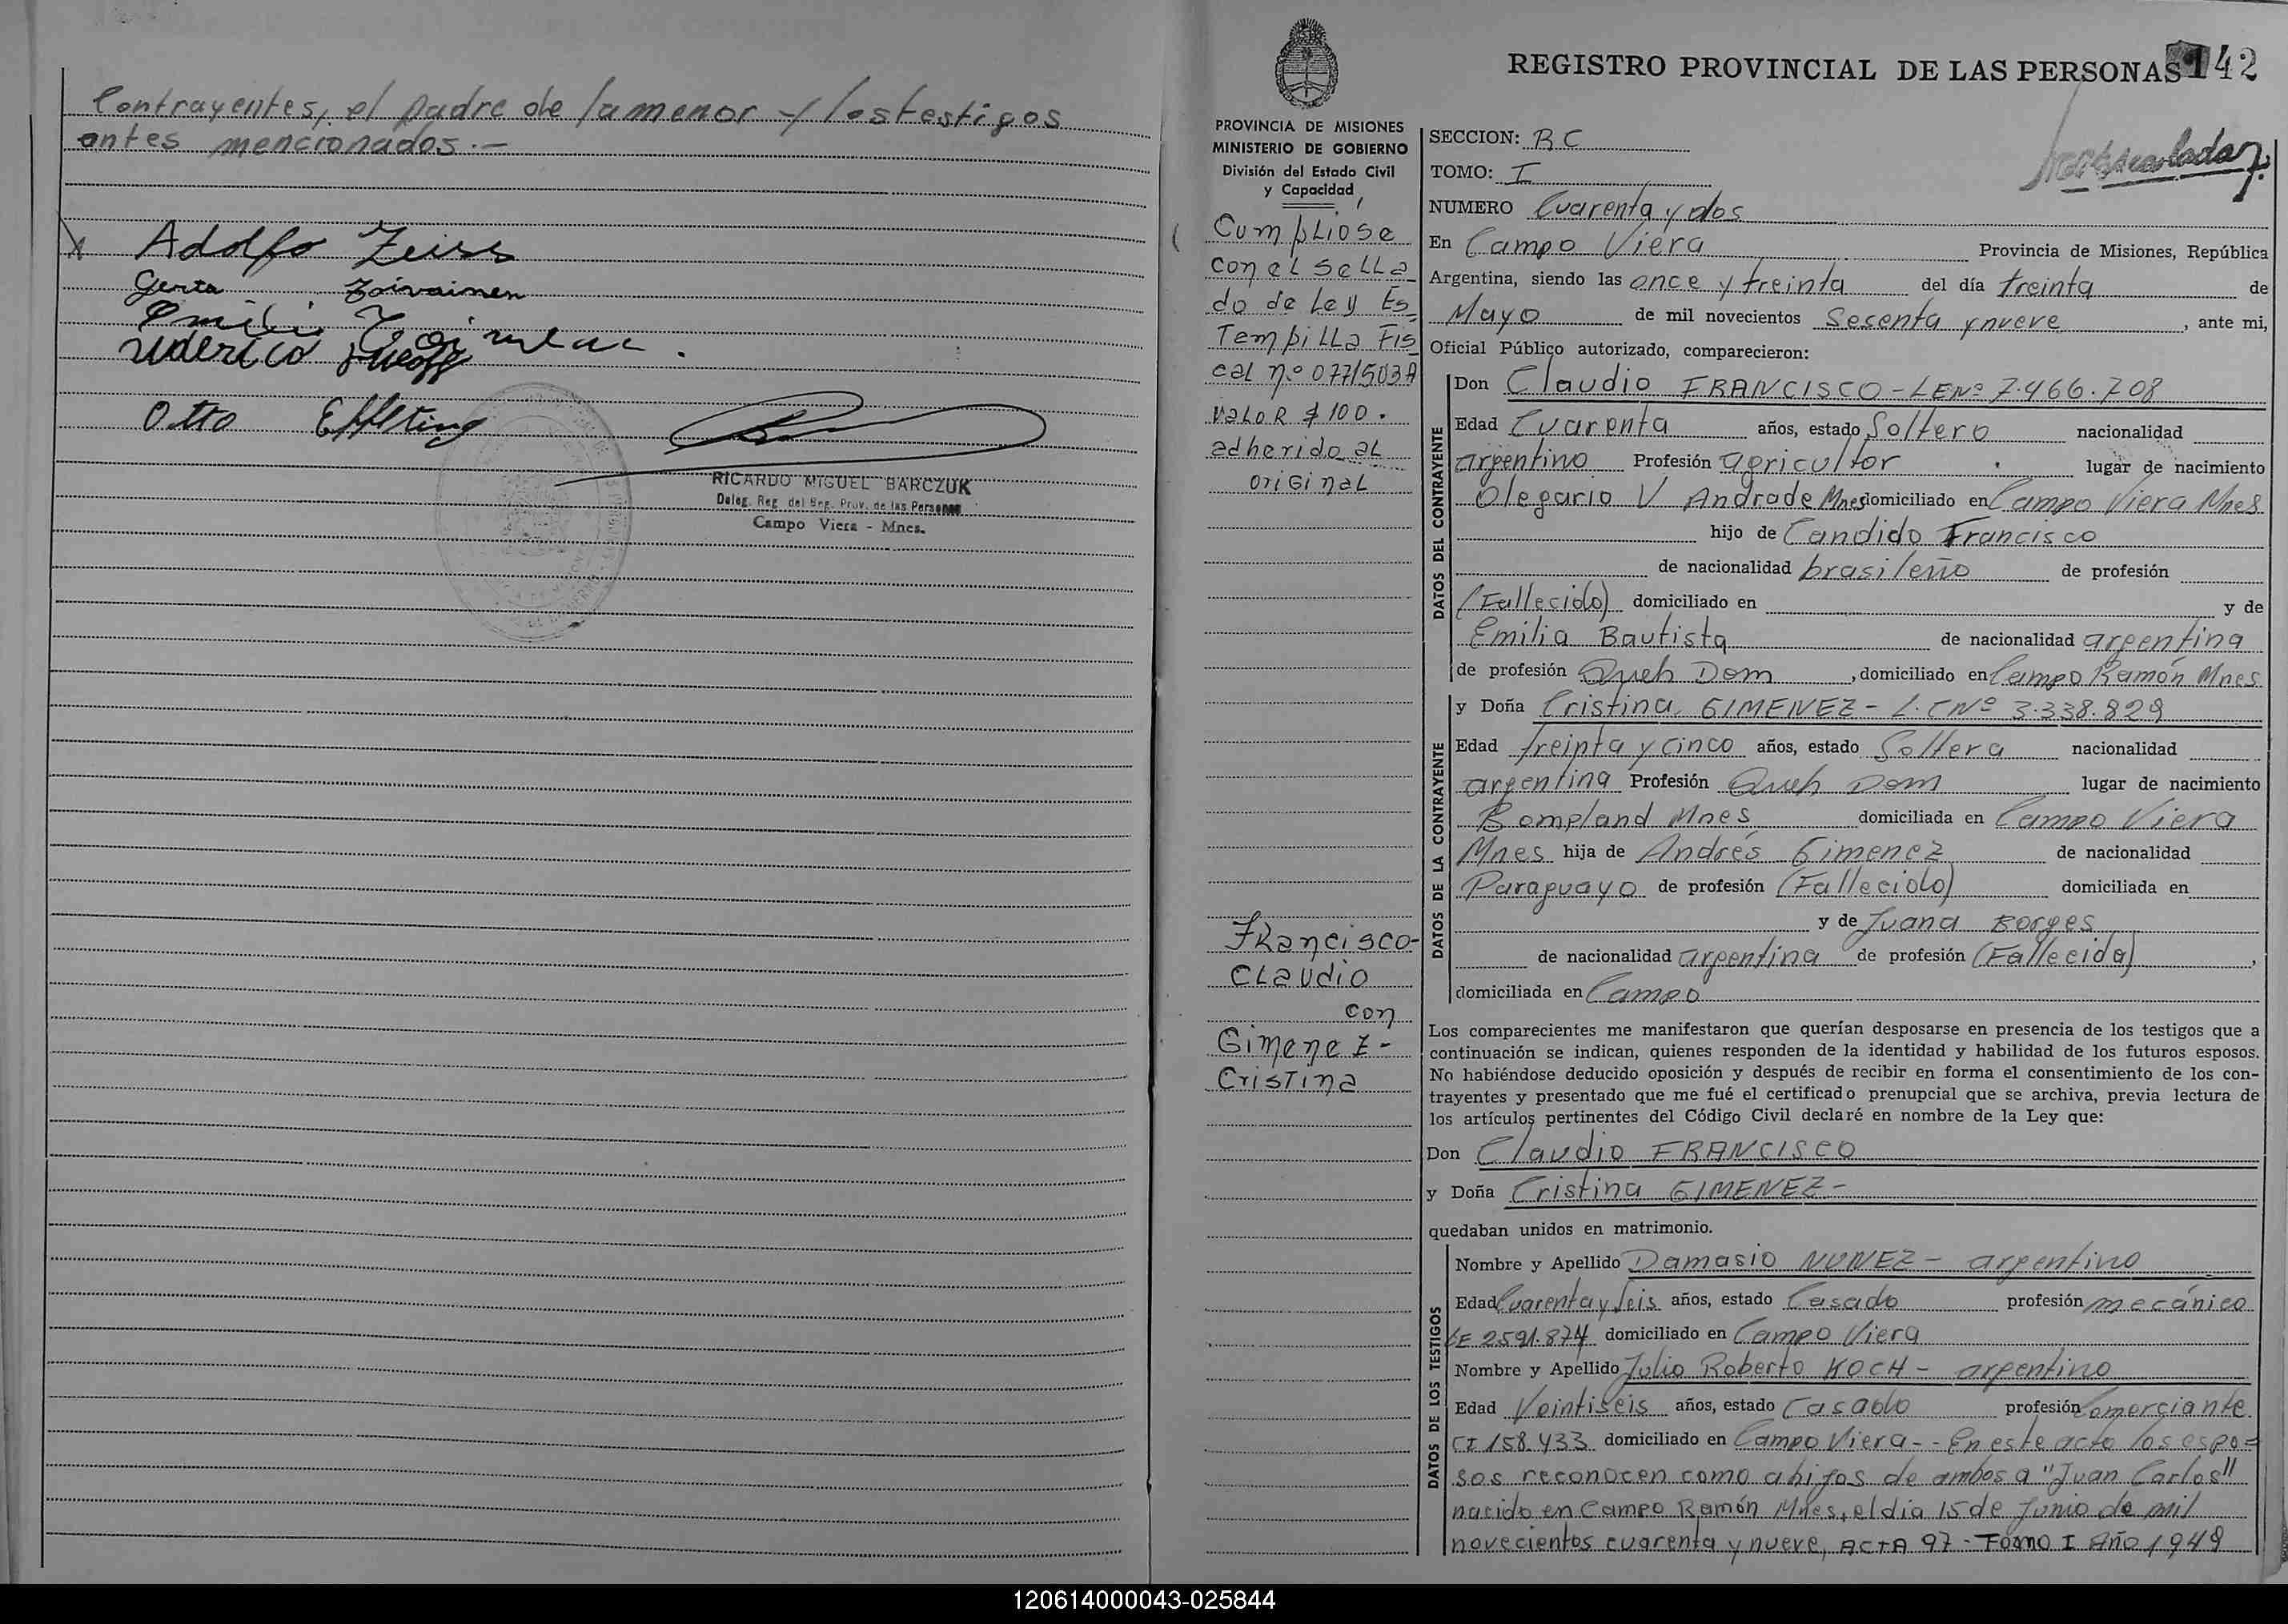 Contrayentes, el padre de la menor y los testigos
antes mencionados.-
Adolfo Zeiss
Gerta Toivainen
Emilio
Otto Effting
RICARDO MIGUEL BARCZUK
Deleg. Reg. del Reg. Prov. de las Personas
Campo Viera - Mnes.
REGISTRO PROVINCIAL DE LAS PERSONAS 142
PROVINCIA DE MISIONES
MINISTERIO DE GOBIERNO
División del Estado Civil
y Capacidad
Cumplióse
con el sella
do de Ley Es
Tempilla Fis
cal nº 077/503A
valor $ 100.
adherido al
original
Francisco-
Claudio
con
Gimenez-
Cristina
SECCION: RC
TOMO: I
NUMERO Cuarenta y dos
En Campo Viera Provincia de Misiones, República
Argentina, siendo las once y treinta del día treinta de
Mayo de mil novecientos Sesenta y nueve, ante mi,
Oficial Público autorizado, comparecieron:
DATOS DEL CONTRAYENTE
Don Claudio FRANCISCO - LENº 7.466.708
Edad Cuarenta años, estado Soltero nacionalidad
argentino Profesión agricultor lugar de nacimiento
Olegario V Andrade Mnes domiciliado en Campo Viera Mnes
hijo de Candido Francisco
de nacionalidad brasileño de profesión
(Fallecido) domiciliado en y de
Emilia Bautista de nacionalidad argentina
de profesión Queh Dom, domiciliado en Campo Ramón Mnes
DATOS DE LA CONTRAYENTE
y Doña Cristina GIMENEZ - L.C Nº 3.338.829
Edad treinta y cinco años, estado Soltera nacionalidad
argentina Profesión Queh Dom lugar de nacimiento
Bompland Mnes domiciliada en Campo Viera
Mnes hija de Andrés Gimenez de nacionalidad
Paraguayo de profesión (Fallecido) domiciliada en
y de Juana Borges
de nacionalidad argentina de profesión (Fallecida),
domiciliada en Campo
Los comparecientes me manifestaron que querían desposarse en presencia de los testigos que a
continuación se indican, quienes responden de la identidad y habilidad de los futuros esposos.
No habiéndose deducido oposición y después de recibir en forma el consentimiento de los con-
trayentes y presentado que me fué el certificado prenupcial que se archiva, previa lectura de
los artículos pertinentes del Código Civil declaré en nombre de la Ley que:
Don Claudio FRANCISCO
y Doña Cristina GIMENEZ-
quedaban unidos en matrimonio.
DATOS DE LOS TESTIGOS
Nombre y Apellido Damasio NUNEZ - argentino
Edad Cuarenta y Seis años, estado Casado profesión mecánico
LE 2591.874 domiciliado en Campo Viera
Nombre y Apellido Julio Roberto KOCH - argentino
Edad Veintiseis años, estado Casado profesión Comerciante
CI 158.433 domiciliado en Campo Viera-- En este acto los espo=
sos reconocen como a hijos de ambos a "Juan Carlos"
nacido en Campo Ramón Mnes, el día 15 de Junio de mil
novecientos cuarenta y nueve, ACTA 97 - Tomo I Año 1949
120614000043-025844